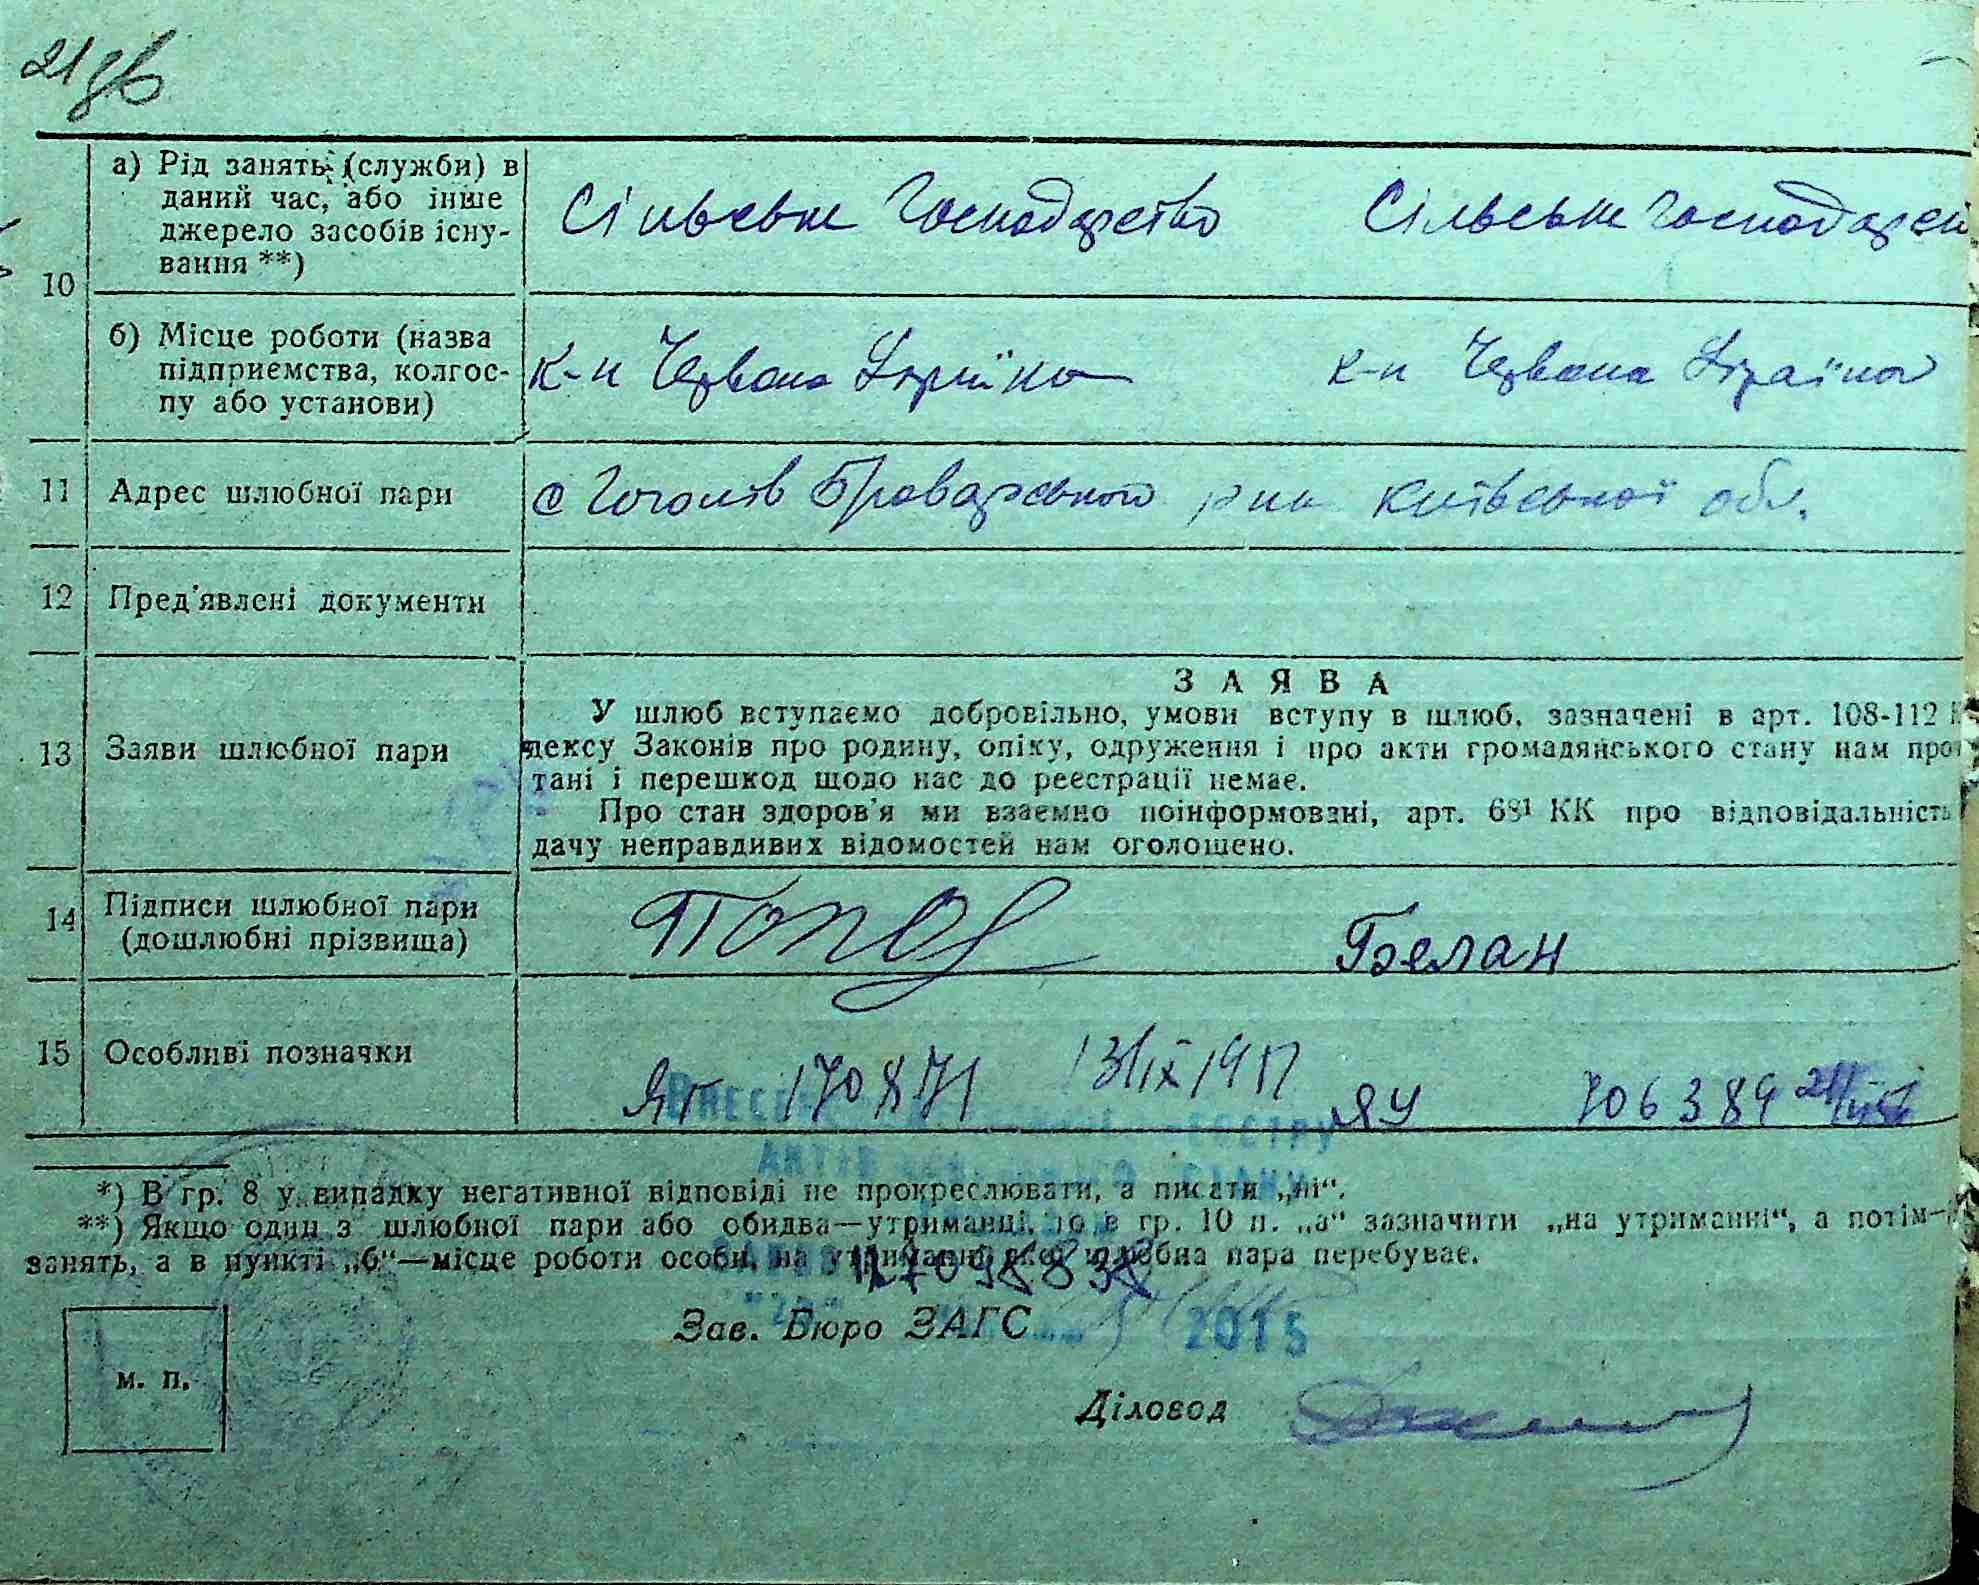 21 зв
10 а) Рід занять (служби) в
даний час, або інше
джерело засобів існу-
вання **)
Сільське Господарство Сільське Господарс
б) Місце роботи (назва
підприємства, колгос-
пу або установи)
к-п Червона Україна к-п Червона Україна
11 Адрес шлюбної пари с Гоголів Броварського р-ну Київської обл.
12 Пред'явлені документи
13 Заяви шлюбної пари
ЗАЯВА
У шлюб вступаємо добровільно, умови вступу в шлюб, зазначені в арт. 108-112 К
дексу Законів про родину, опіку, одруження і про акти громадянського стану нам проч
тані і перешкод щодо нас до реєстрації немає.
Про стан здоров'я ми взаємно поінформовані, арт. 68¹ КК про відповідальність
дачу неправдивих відомостей нам оголошено.
14 Підписи шлюбної пари
(дошлюбні прізвища)
Попов Белан
15 Особливі позначки
170871 ЯУ 706389
Внесено реєстру
актів стану
*) В гр. 8 у випадку негативної відповіді не прокреслювати, а писати „ні“.
**) Якщо один з шлюбної пари або обидва—утриманці, то в гр. 10 п. „а“ зазначити „на утриманні“, а потім—
занять, а в пункті „б“—місце роботи особи, на утриманні якої шлюбна пара перебуває.
2015
Зав. Бюро ЗАГС
м. п.
Діловод